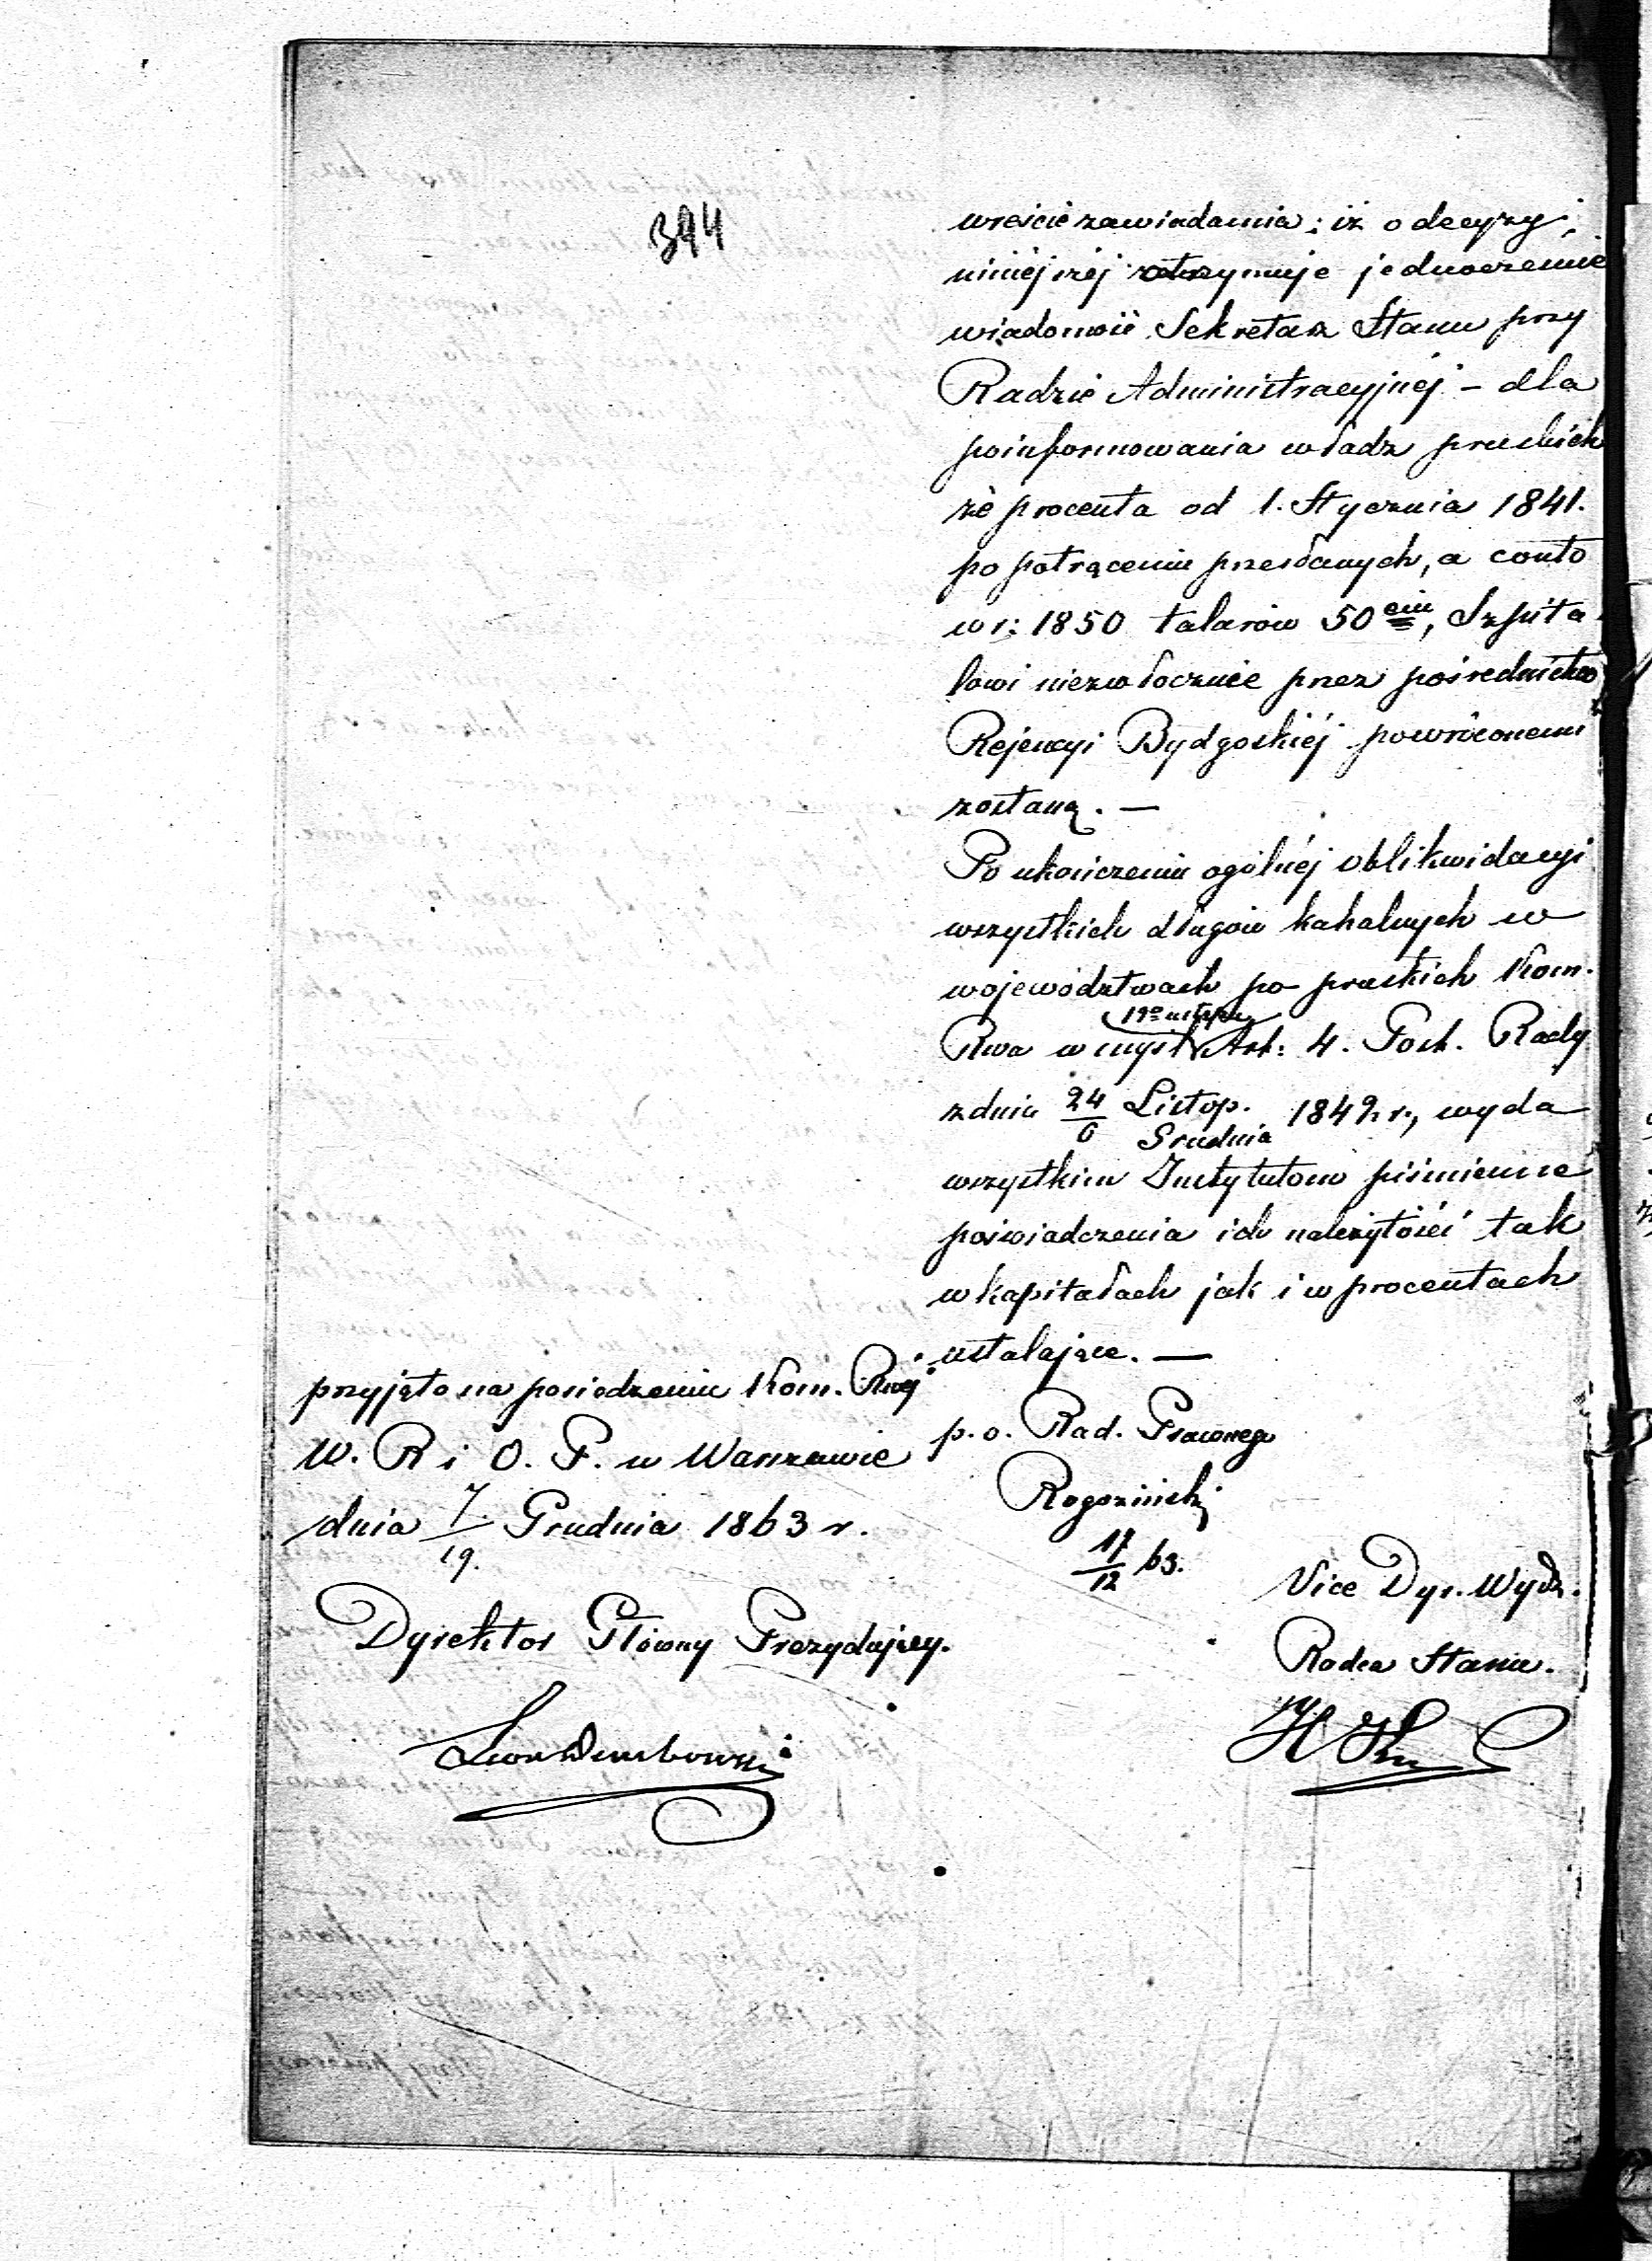 394
wreście zawiadamia: iż o decyzyi
niniéjszéj otrzymuje jednocześnie
wiadomość Sekretarz Stanu przy
Radzie Administracyjnéj – dla
poinformowania władz pruskich
że procenta od 1. Stycznia 1841.
po potrąceniu przesłanych, a conto
w r: 1850 talarów 50ciu, Szpita
lowi niezwłocznie przez pośrednictwo
Rejencyi Bydgoskiéj powróconemi
zostaną. —
Po ukończeniu ogólnéj oblikwidacyi
wszystkich długów kahalnych w
województwach po pruskich Kom.
19º ustępu
Rwa w myśl Art: 4. Post. Rady
z dnia 24/6 Listop./Grudnia 1849 r., wyda
wszystkim Instytutom piśmienne
poświadczenia ich należytości tak
w kapitałach jak i w procentach
ustalające. —
przyjęto na posiedzeniu Kom. Rwéj
W. R i O. P. w Warszawie
dnia 7/19. Grudnia 1863 r.
Dyrektor Główny Prezydujący.
Leon Dembowski
p. o. Rad. Prawnego
Rogoziński
17/12 63.
Vice Dyr. Wydz.
Radca Stanu.